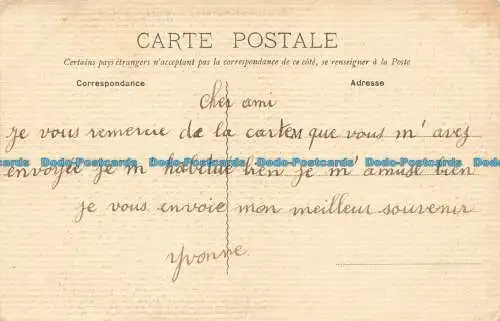 CARTE POSTALE
Certains pays étrangers n'acceptant pas la correspondance de ce côté, se renseigner à la Poste
Correspondance Adresse
Cher ami
Je vous remercie de la carte que vous m'avez
Dodo-Postcards Dodo-Postcards Dodo-Postcards Dodo-Postcards
envoyée je m'habitue bien je m'amuse bien
je vous envoie mon meilleur souvenir
Yvonne